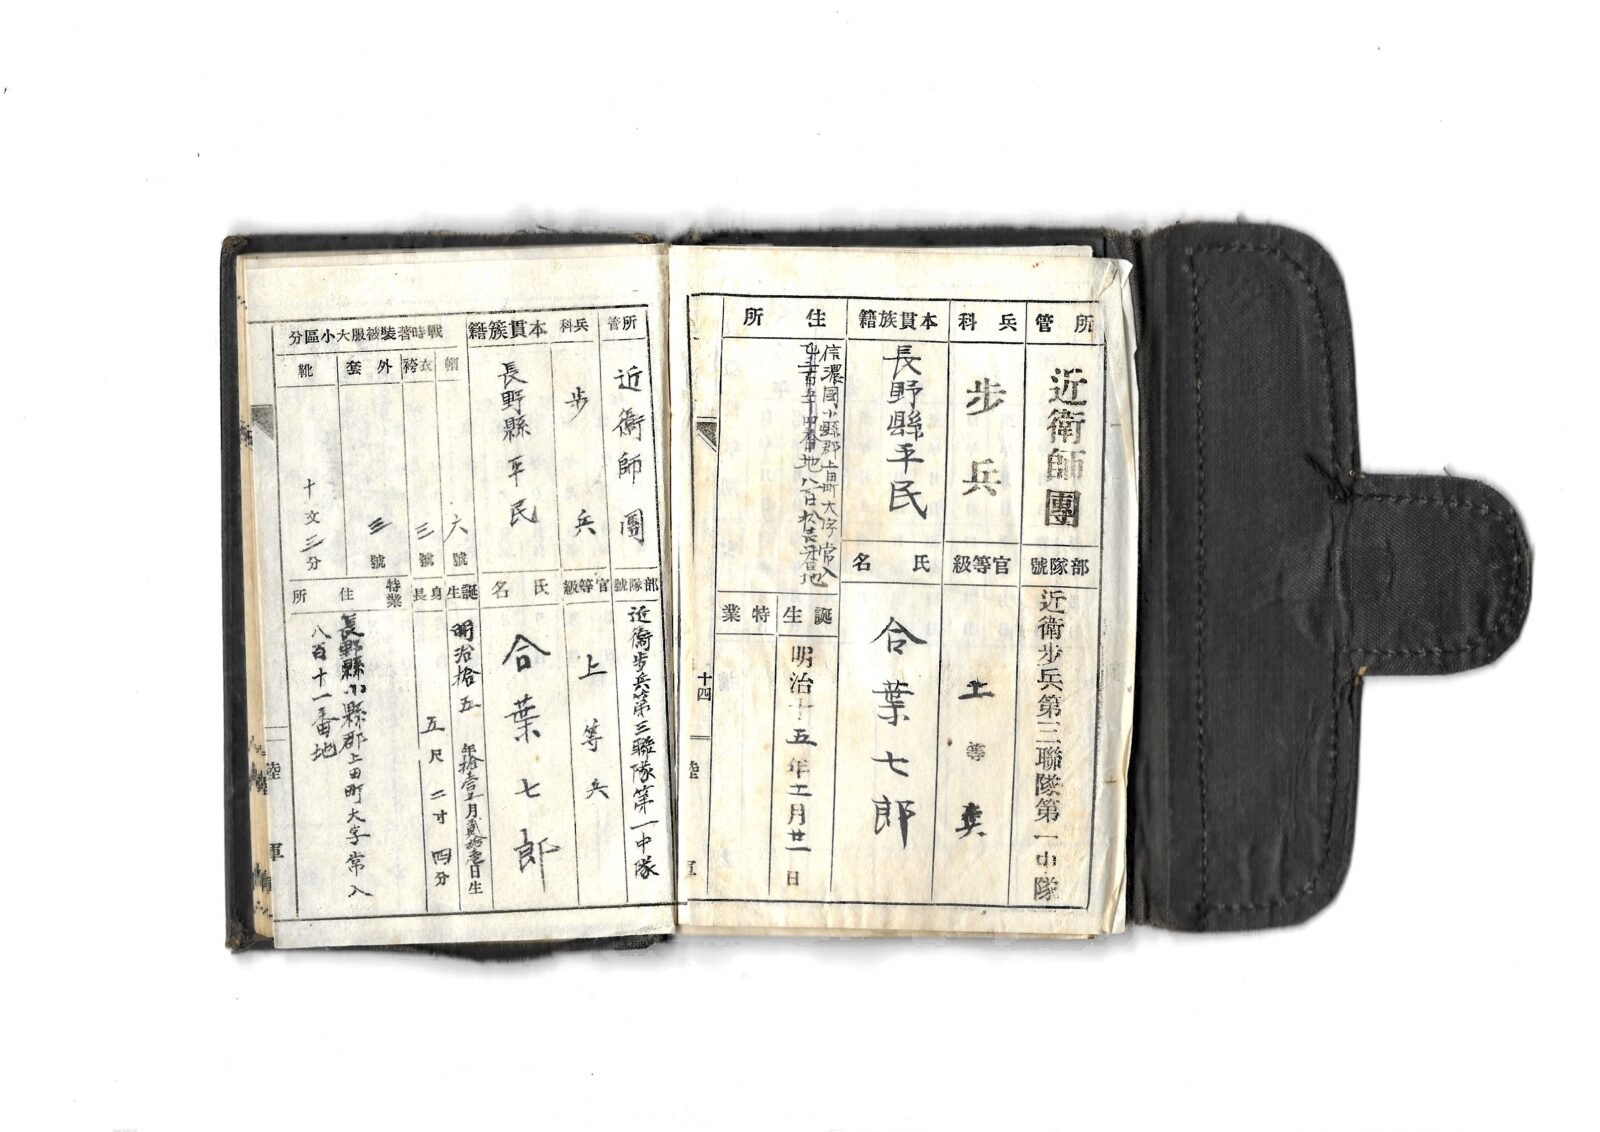 所管
近衛師團
部隊號
近衛歩兵第三聯隊第一中隊
兵科
歩兵
官等級
上等兵
本貫族籍
長野縣平民
氏名
合葉七郎
住所
信濃國小縣郡上田町大字常入
番地
誕生
明治十五年十一月廿一日
特業
十四
陸軍
所管
近衛師團
部隊號
近衛歩兵第三聯隊第一中隊
兵科
歩兵
官等級
上等兵
本貫族籍
長野縣平民
氏名
合葉七郎
戰時著裝被服大小區分
帽
六號
衣袴
三號
外套
三號
靴
十文三分
誕生
明治拾五年拾壹月貳拾壹日生
身長
五尺二寸四分
特業
住所
長野縣小縣郡上田町大字常入
八百十一番地
陸軍